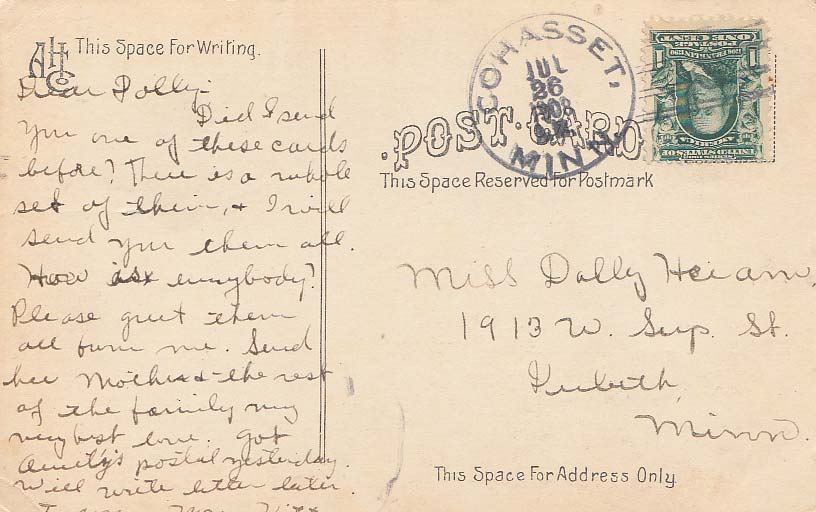 This Space For Writing.
Dear Dolly:
Did I send
you one of these cards
before? There is a whole
set of them, & I will
send you them all.
How is everybody?
Please greet them
all from me. Send
her Mother & the rest
of the family my
very best love. Got
Aunty's postal yesterday.
Will write letter later.
POST CARD
This Space Reserved For Postmark
COHASSET,
JUL
26
1908
MINN.
ONE CENT
Miss Dolly Heiam,
1913 W. Sup. St.
Duluth,
Minn.
This Space For Address Only.